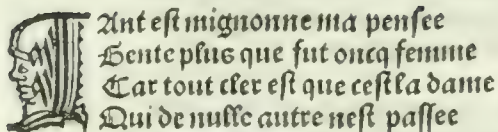 TAnt eſt mignonne ma penſee
Gente plus que fut oncq femme
Car tout cler eſt que ceſt la dame
Qui de nulle autre neſt paſſee